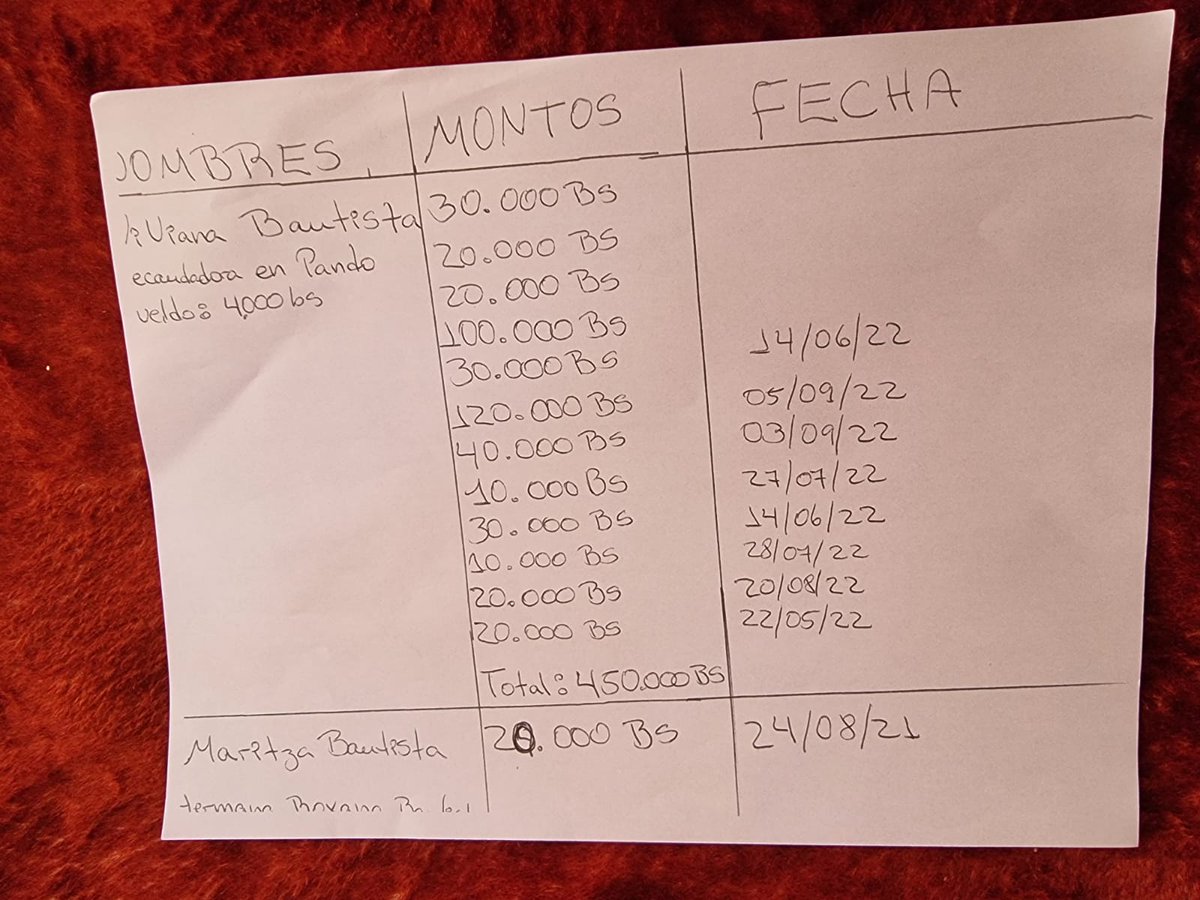 NOMBRES MONTOS FECHA
Viviana Bautista 30.000 Bs
ecaudadora en Pando 20.000 Bs
ueldo: 4,000 bs 20.000 Bs
100.000 Bs 14/06/22
30.000 Bs 05/09/22
120.000 Bs 03/09/22
40.000 Bs 27/07/22
10.000 Bs 14/06/22
30.000 Bs 28/07/22
10.000 Bs 20/08/22
20.000 Bs 22/05/22
20.000 Bs
Total: 450.000 Bs
Maritza Bautista 20.000 Bs 24/08/21